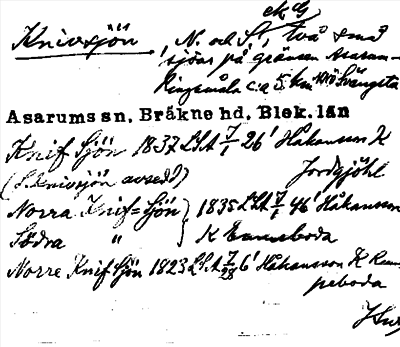 Knivsjön, N. och S., två små
sjöar på gränsen Asarum-
Ringamåla c:a 5 km NNÖ Svängsta
Asarums sn. Bräkne hd. Blek. län
Knif Sjön 1837 LSA 7/1 26' Håkansson K
(S. Knivsjön avsed!)
Norra Knif=Sjön } 1835 LSA 7/1 46' Håkansson
Södra " } K
Norre Knif Sjön 1823 LSA 7/28 6' Håkansson K
peboda